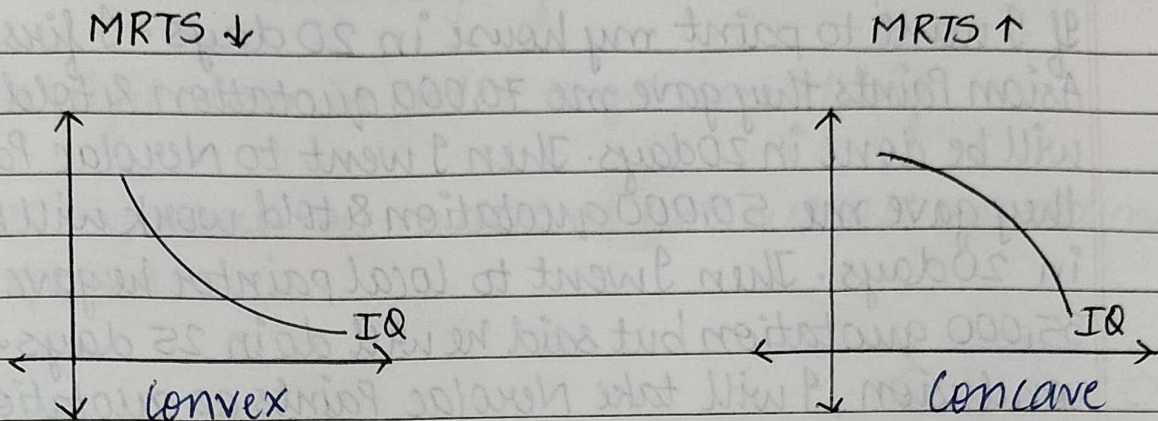 MRTS ↓ MRTS ↑
IQ IQ
Convex Concave